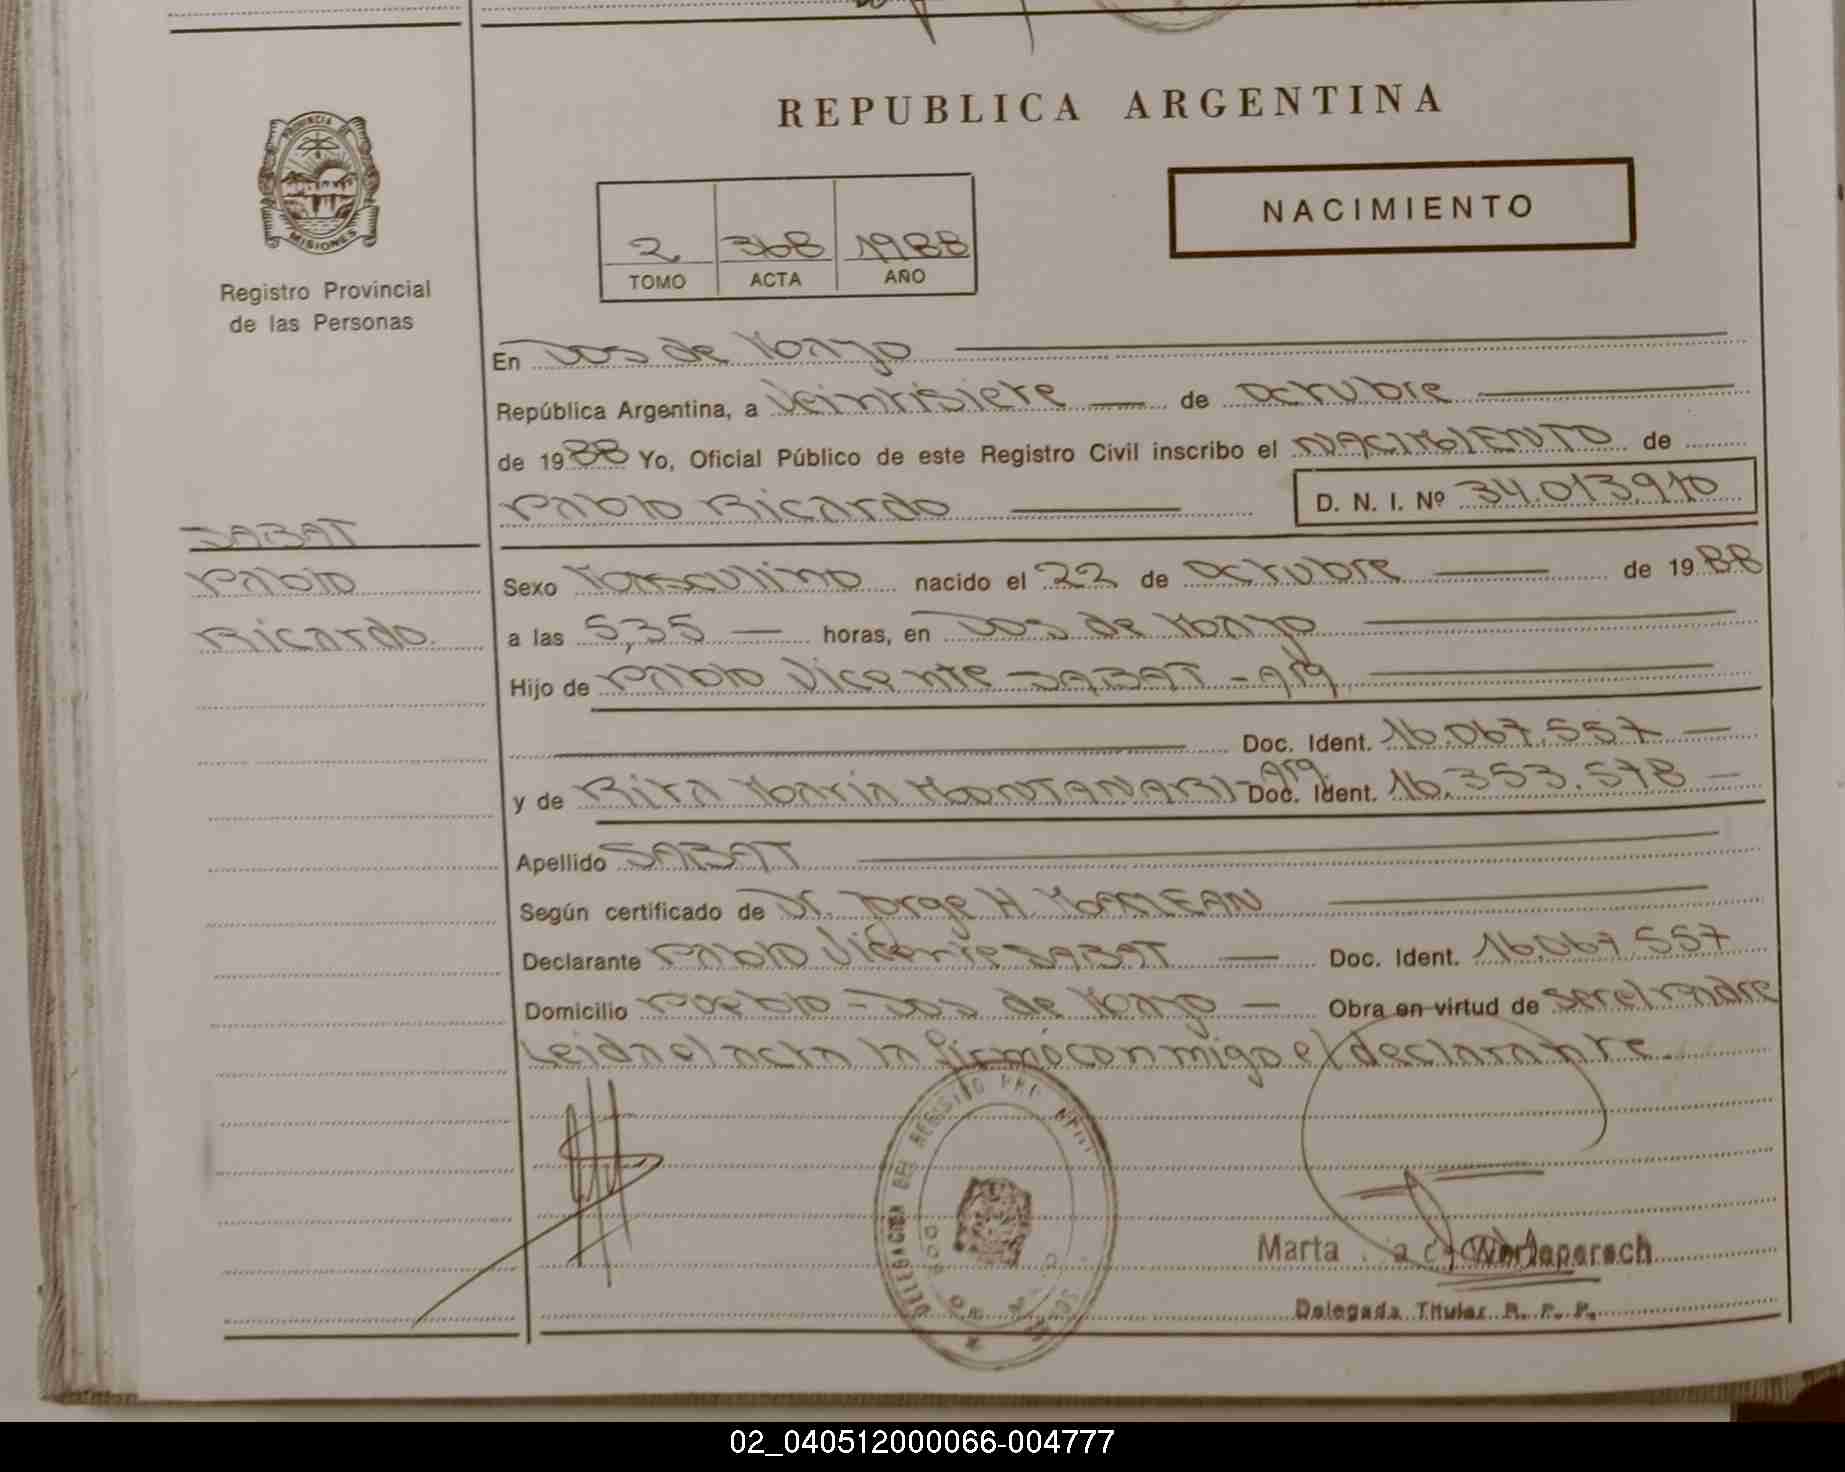 REPUBLICA ARGENTINA
PROVINCIA DE
MISIONES
Registro Provincial
de las Personas
2 368 1988
TOMO ACTA AÑO
NACIMIENTO
En Dos de Mayo
República Argentina, a Veintisiete de Octubre
de 1988 Yo, Oficial Público de este Registro Civil inscribo el NACIMIENTO de
Pablo Ricardo
D. N. I. Nº 34.013.910
SABAT
Pablo
Ricardo.
Sexo Masculino nacido el 22 de Octubre de 1988
a las 5,35 horas, en Dos de Mayo
Hijo de Pablo Vicente SABAT - Arg
Doc. Ident. 16.067.557
y de Rita María MONTANARI - Arg. Doc. Ident. 16.353.578
Apellido SABAT
Según certificado de Dr. Jorge H.
Declarante Pablo Vicente SABAT Doc. Ident. 16.067.557
Domicilio Pueblo - Dos de Mayo Obra en virtud de ser el Padre
Leida el acta la firmó conmigo el declarante.
DELEGACION DEL REGISTRO
Marta
Delegada Titular R. P. P.
02_040512000066-004777